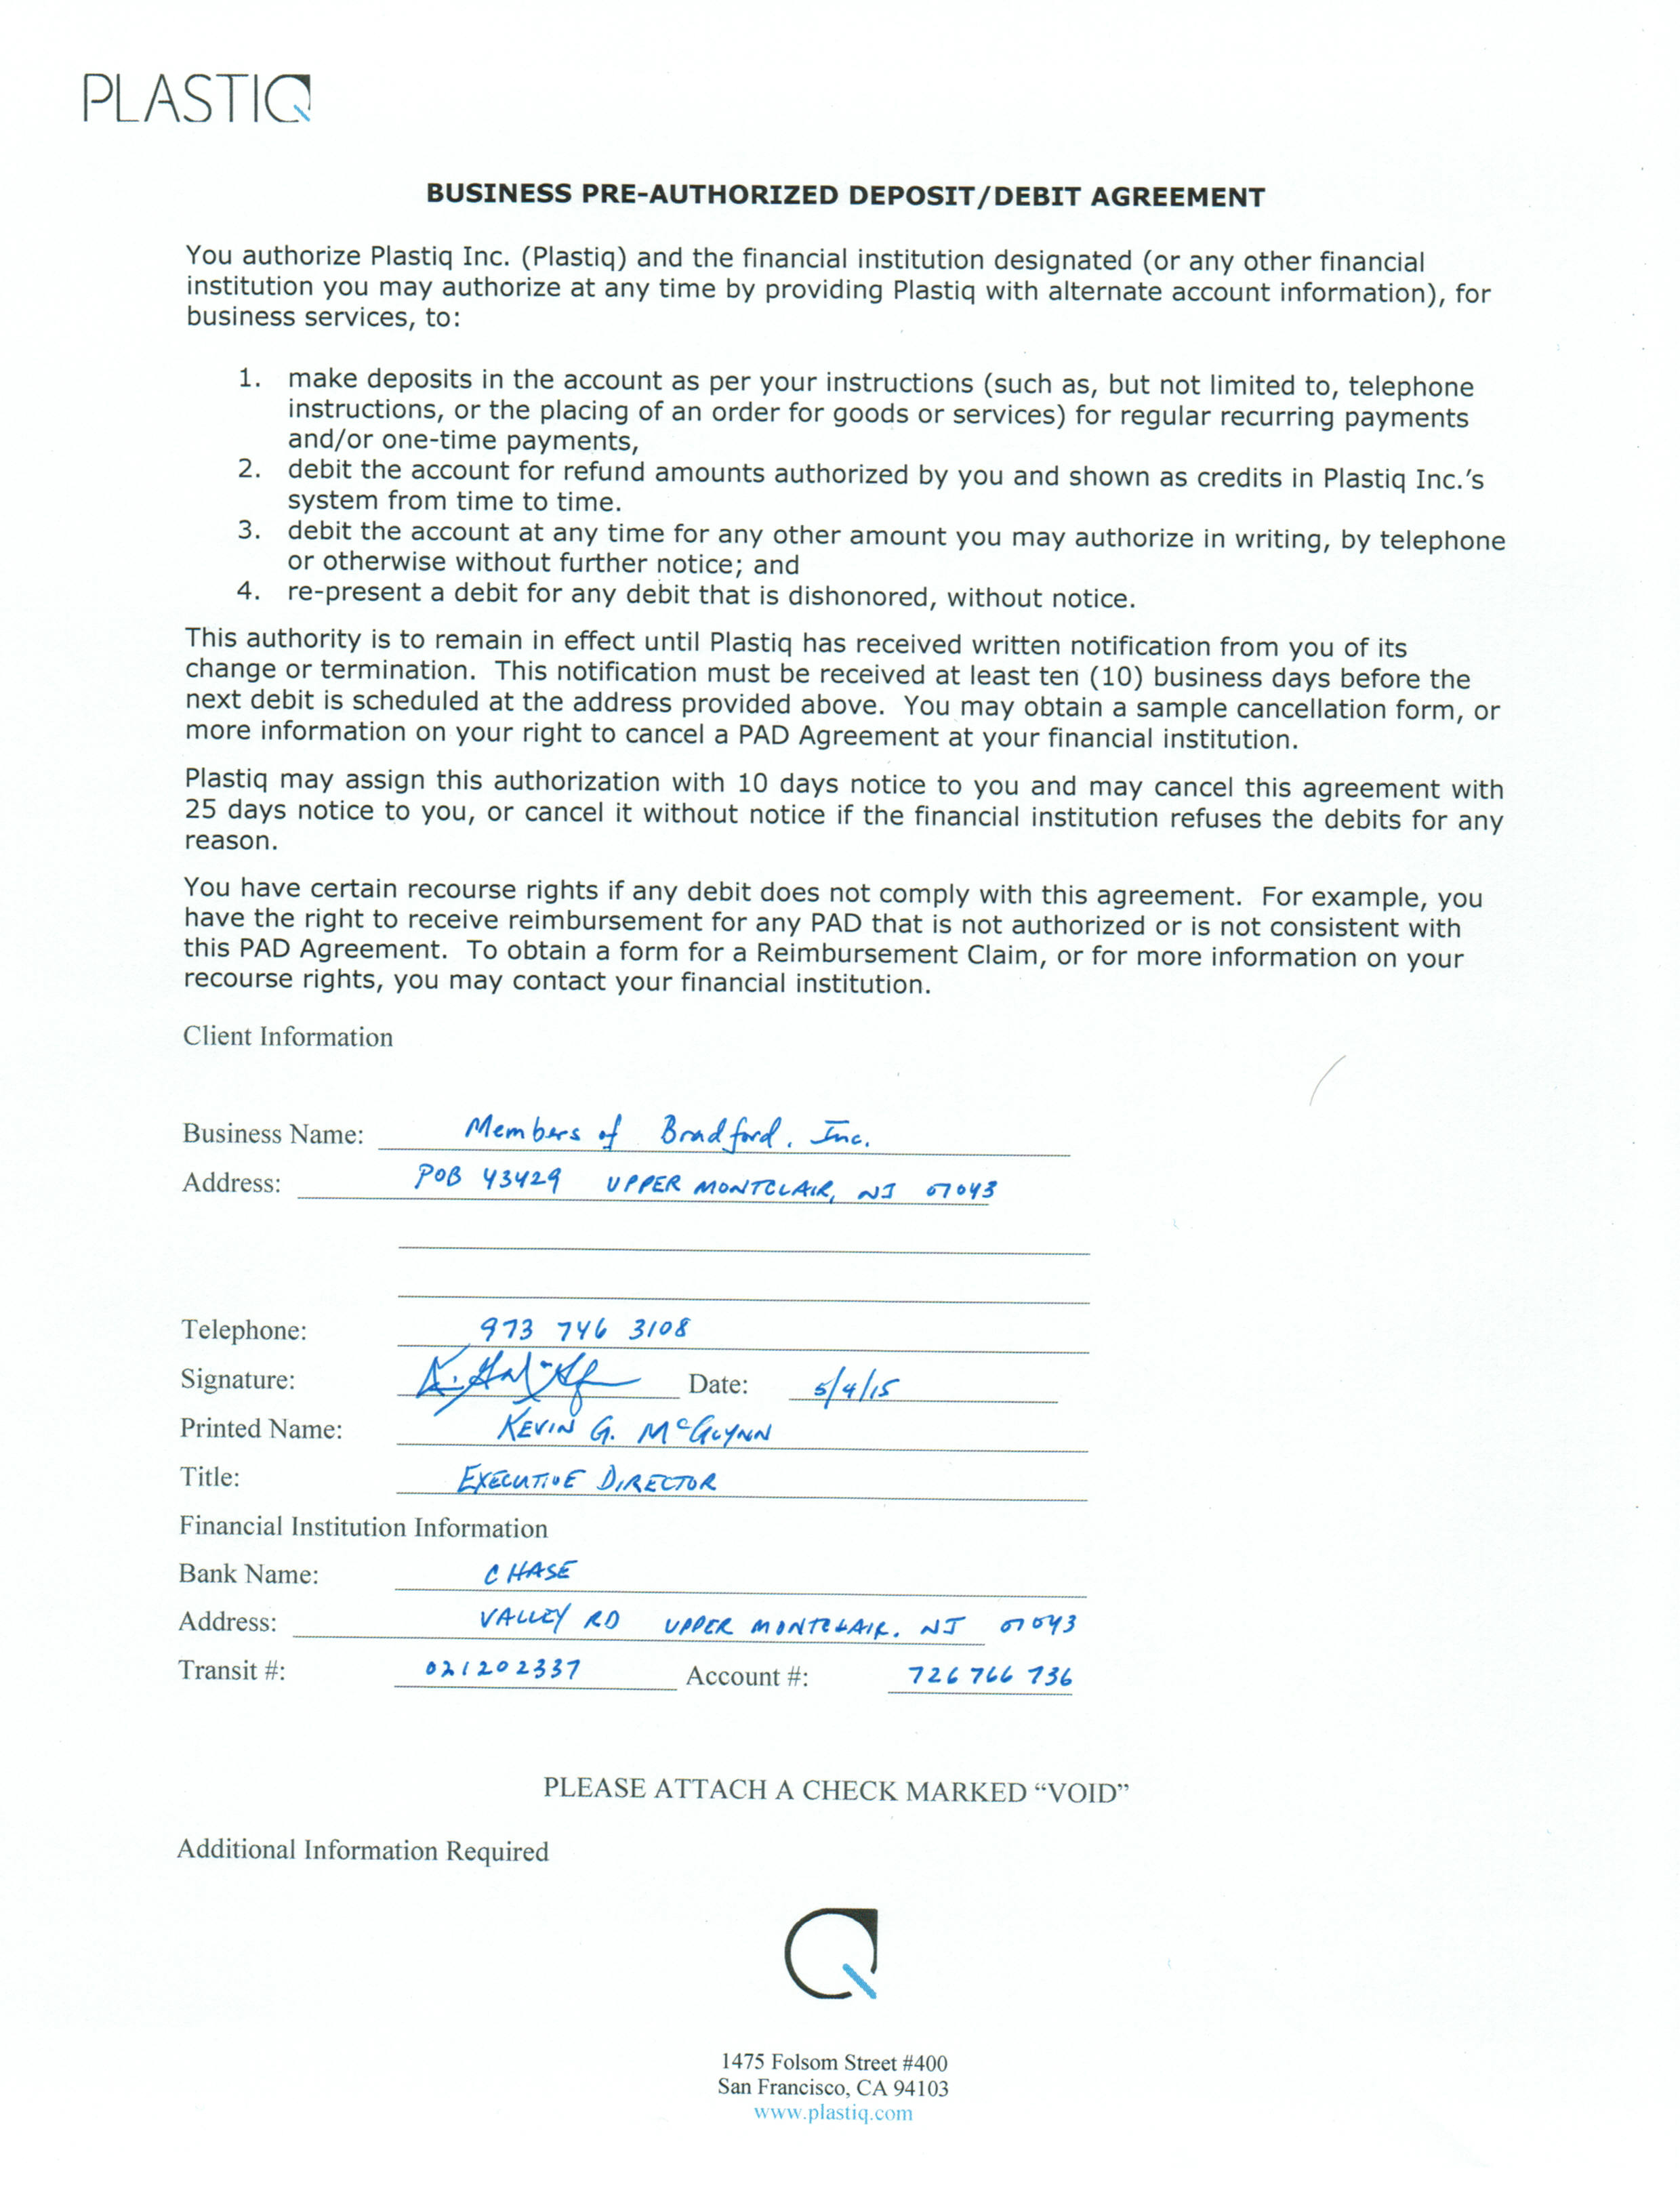 PLASTIQ
BUSINESS PRE-AUTHORIZED DEPOSIT/DEBIT AGREEMENT
You authorize Plastiq Inc. (Plastiq) and the financial institution designated (or any other financial
institution you may authorize at any time by providing Plastiq with alternate account information), for
business services, to:
1. make deposits in the account as per your instructions (such as, but not limited to, telephone
instructions, or the placing of an order for goods or services) for regular recurring payments
and/or one-time payments,
2. debit the account for refund amounts authorized by you and shown as credits in Plastiq Inc.'s
system from time to time.
3. debit the account at any time for any other amount you may authorize in writing, by telephone
or otherwise without further notice; and
4. re-present a debit for any debit that is dishonored, without notice.
This authority is to remain in effect until Plastiq has received written notification from you of its
change or termination. This notification must be received at least ten (10) business days before the
next debit is scheduled at the address provided above. You may obtain a sample cancellation form, or
more information on your right to cancel a PAD Agreement at your financial institution.
Plastiq may assign this authorization with 10 days notice to you and may cancel this agreement with
25 days notice to you, or cancel it without notice if the financial institution refuses the debits for any
reason.
You have certain recourse rights if any debit does not comply with this agreement. For example, you
have the right to receive reimbursement for any PAD that is not authorized or is not consistent with
this PAD Agreement. To obtain a form for a Reimbursement Claim, or for more information on your
recourse rights, you may contact your financial institution.
Client Information
Business Name: Members of Bradford, Inc.
Address: POB 43429 UPPER MONTCLAIR, NJ 07043
Telephone: 973 746 3108
Signature: Date: 5/4/15
Printed Name: KEVIN G. McGLYNN
Title: EXECUTIVE DIRECTOR
Financial Institution Information
Bank Name: CHASE
Address: VALLEY RD UPPER MONTCLAIR, NJ 07043
Transit #: 021202337 Account #: 726 766 736
PLEASE ATTACH A CHECK MARKED “VOID”
Additional Information Required
1475 Folsom Street #400
San Francisco, CA 94103
www.plastiq.com